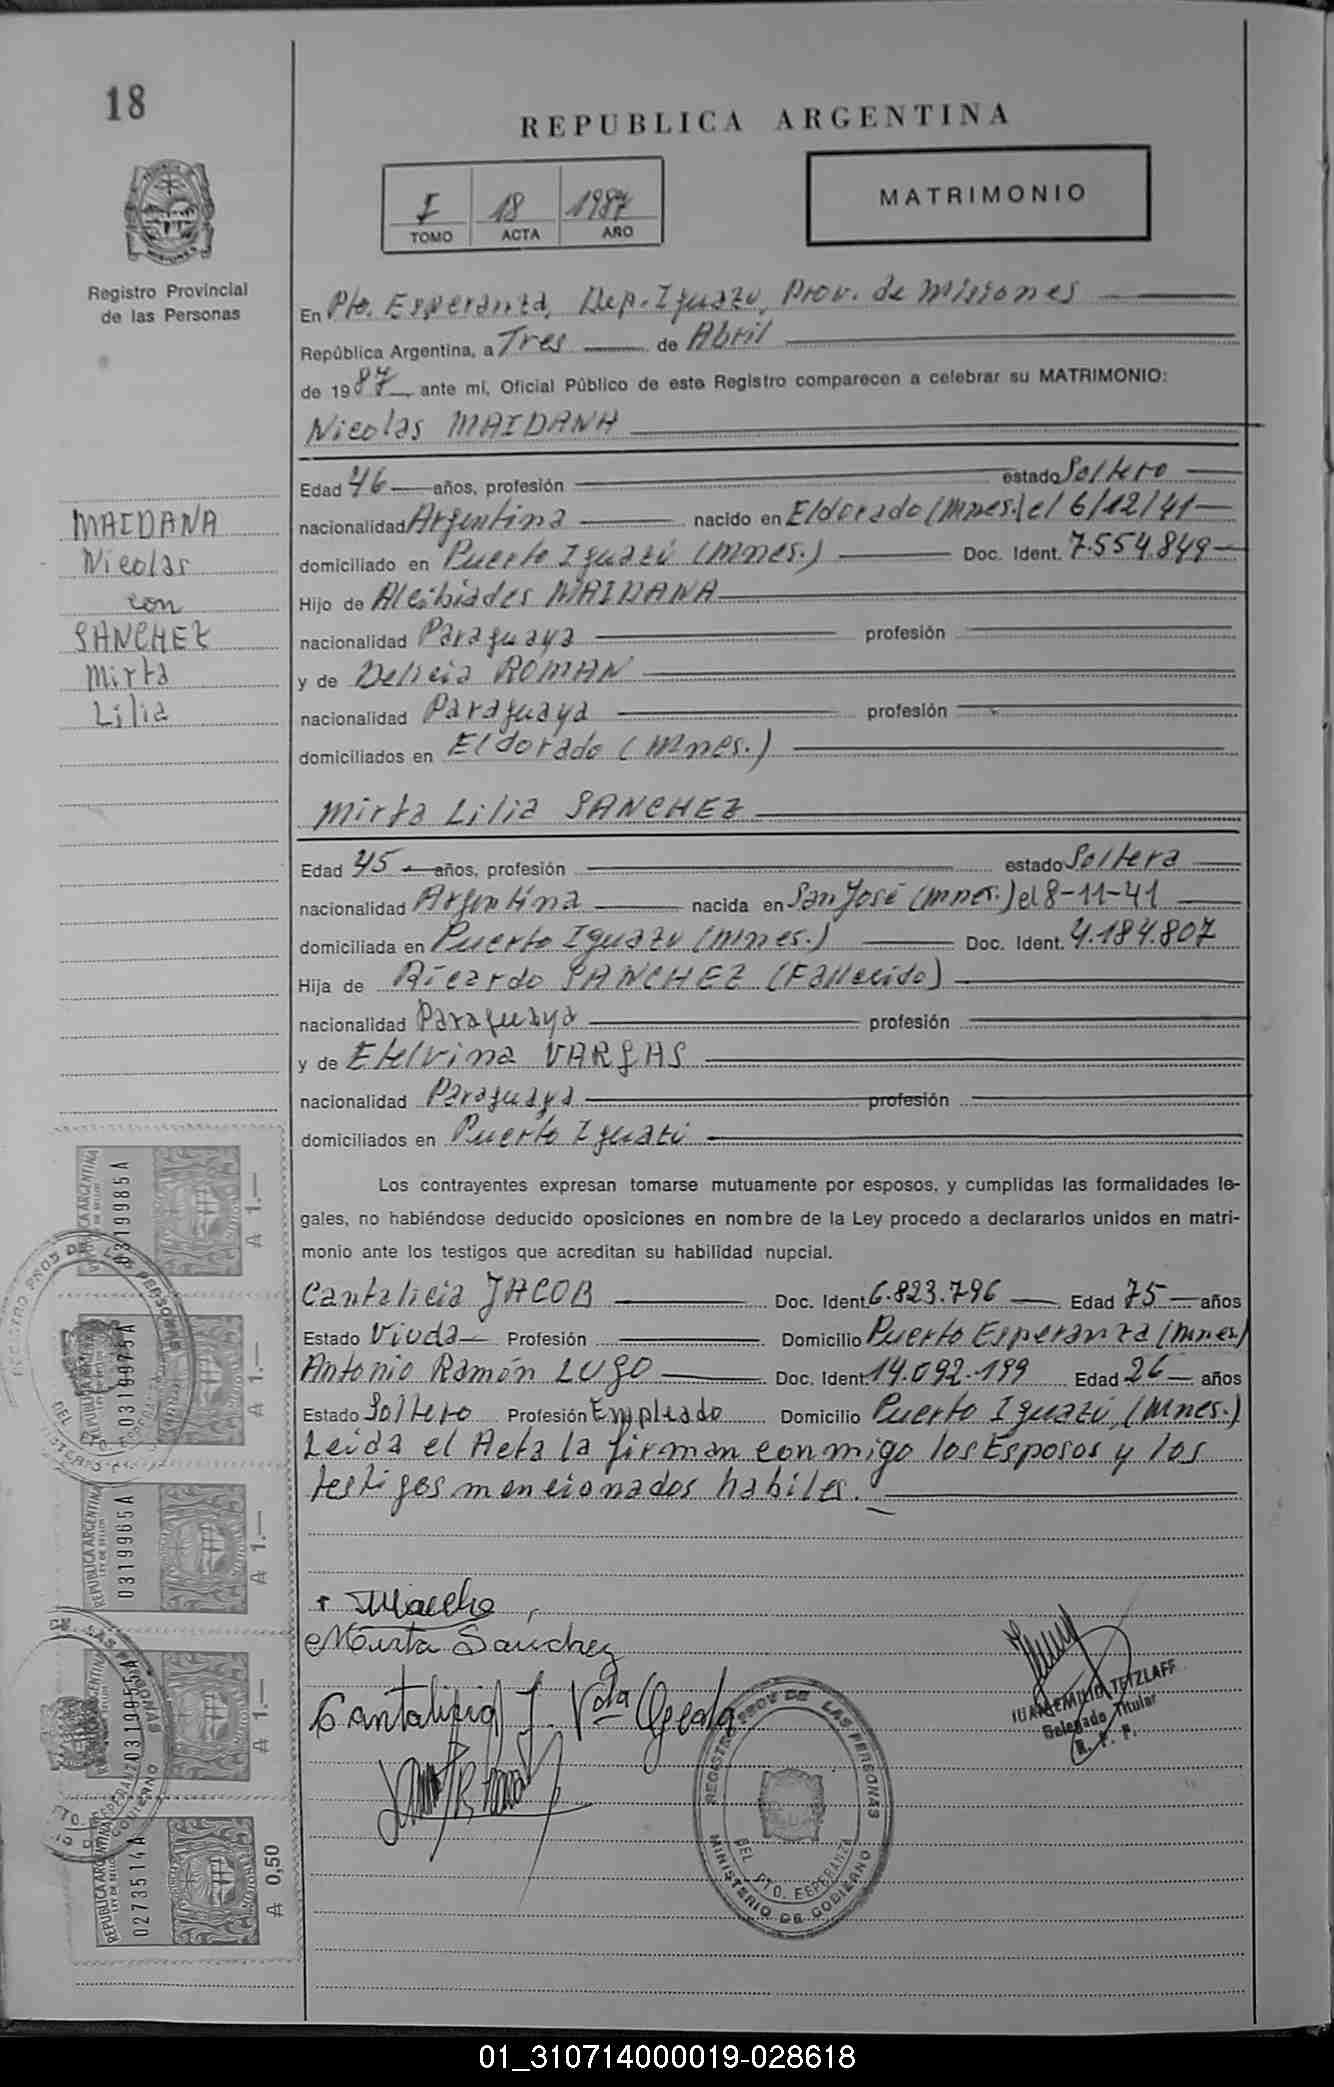 18
REPUBLICA ARGENTINA
I 18 1987
TOMO ACTA AÑO
MATRIMONIO
Registro Provincial
de las Personas
En Pto. Esperanza, Dep. Iguazu, Prov. de Misiones
República Argentina, a Tres de Abril
de 1987 ante mí, Oficial Público de este Registro comparecen a celebrar su MATRIMONIO:
Nicolas MAIDANA
Edad 46 años, profesión estado Soltero
nacionalidad Argentina nacido en Eldorado (Mnes.) el 6/12/41
domiciliado en Puerto Iguazú (Mnes.) Doc. Ident. 7.554.849
Hijo de Alcibiades MAIDANA
nacionalidad Paraguaya profesión
y de Delicia ROMAN
nacionalidad Paraguaya profesión
domiciliados en Eldorado (Mnes.)
MAIDANA
Nicolas
con
SANCHEZ
Mirta
Lilia
Mirta Lilia SANCHEZ
Edad 45 años, profesión estado Soltera
nacionalidad Argentina nacida en San José (Mnes.) el 8-11-41
domiciliada en Puerto Iguazu (Mnes.) Doc. Ident. 4.184.807
Hija de Ricardo SANCHEZ (Fallecido)
nacionalidad Paraguaya profesión
y de Etelvina VARGAS
nacionalidad Paraguaya profesión
domiciliados en Puerto Iguazú
Los contrayentes expresan tomarse mutuamente por esposos, y cumplidas las formalidades le-
gales, no habiéndose deducido oposiciones en nombre de la Ley procedo a declararlos unidos en matri-
monio ante los testigos que acreditan su habilidad nupcial.
Cantalicia JACOB Doc. Ident. 6.823.796 Edad 75 años
Estado Viuda Profesión Domicilio Puerto Esperanza (Mnes.)
Antonio Ramón LUGO Doc. Ident. 14.092.199 Edad 26 años
Estado Soltero Profesión Empleado Domicilio Puerto Iguazú, (Mnes.)
Leida el Acta la firman conmigo los Esposos y los
testigos mencionados habiles.
Mirta Sanchez
Cantalicia J. Vda
JUAN EMILIO TETZLAFF
Delegado Titular
R. P. P.
REGISTRO PROV DE LAS PERSONAS
DEL PTO. ESPERANZA
MINISTERIO DE GOBIERNO
REPUBLICA ARGENTINA
LEY DE SELLOS
0319985A
A 1.—
0319975A
A 1.—
REPUBLICA ARGENTINA
LEY DE SELLOS
0319965A
A 1.—
0319955A
A 1.—
REPUBLICA ARGENTINA
LEY DE SELLOS
0273514A
A 0,50
01_310714000019-028618